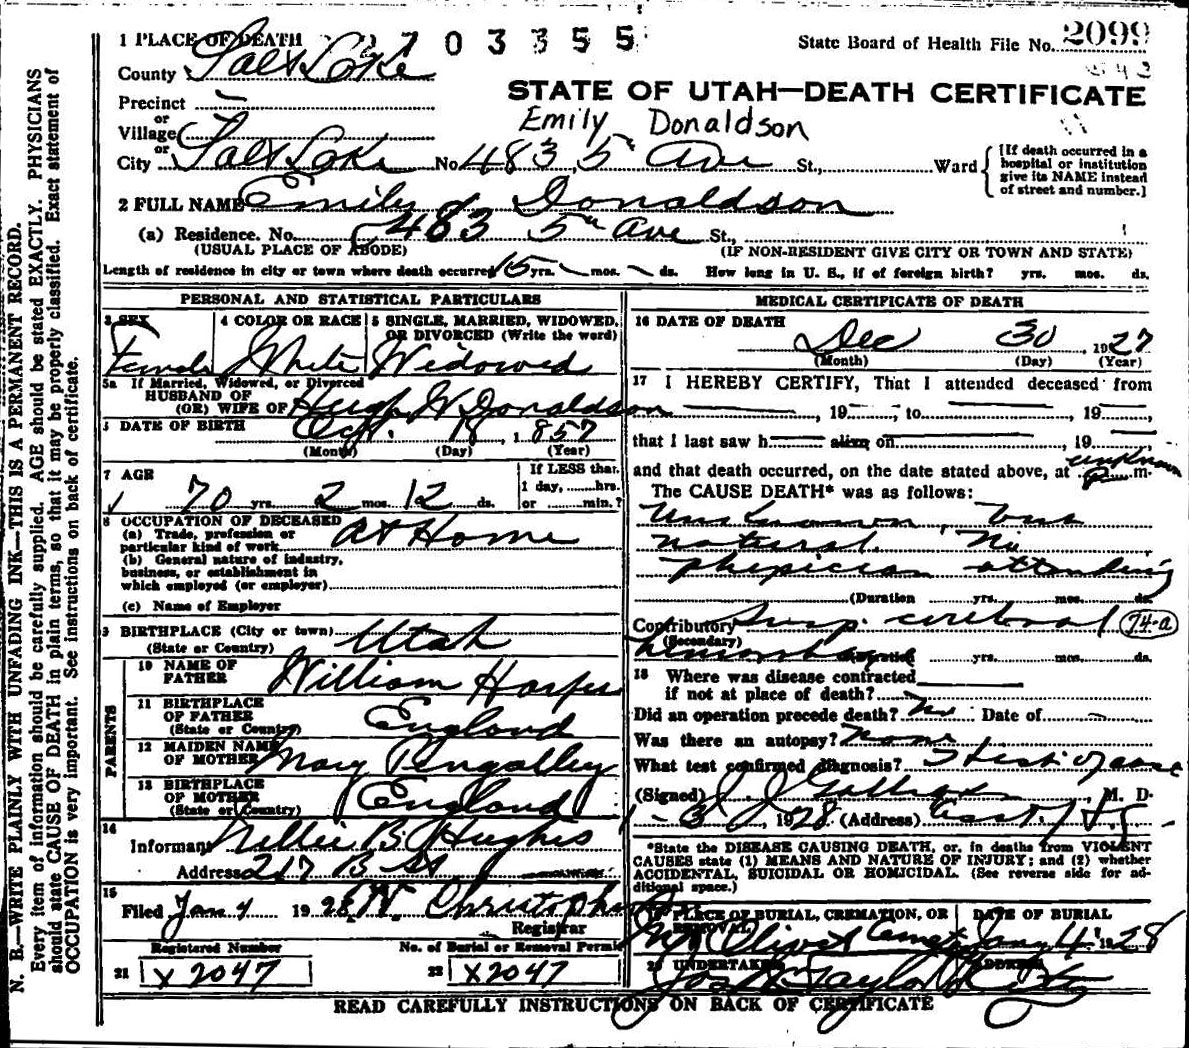 1 PLACE OF DEATH 2 7 0 3 3 5 5
State Board of Health File No. 2099
County Salt Lake
STATE OF UTAH—DEATH CERTIFICATE
Precinct —
or
Village
Emily Donaldson
or
City Salt Lake No. 483 5th Ave St., Ward
[If death occurred in a hospital or institution give its NAME instead of street and number.]
2 FULL NAME Emily Donaldson
(a) Residence. No. 483 5th Ave St.,
(USUAL PLACE OF ABODE) (IF NON-RESIDENT GIVE CITY OR TOWN AND STATE)
Length of residence in city or town where death occurred 15 yrs. — mos. — ds. How long in U. S., if of foreign birth? yrs. mos. ds.
PERSONAL AND STATISTICAL PARTICULARS
3 SEX
Female
4 COLOR OR RACE
White
5 SINGLE, MARRIED, WIDOWED, OR DIVORCED (Write the word)
Widowed
5a If Married, Widowed, or Divorced
HUSBAND OF
(OR) WIFE OF Hugh W Donaldson
DATE OF BIRTH Oct. 18, 1857
(Month) (Day) (Year)
7 AGE
70 yrs. 2 mos. 12 ds.
If LESS than
1 day, hrs.
or min.?
8 OCCUPATION OF DECEASED
(a) Trade, profession or
particular kind of work At Home
(b) General nature of industry,
business, or establishment in
which employed (or employer)
(c) Name of Employer
9 BIRTHPLACE (City or town)
(State or Country) Utah
PARENTS
10 NAME OF
FATHER William Harper
11 BIRTHPLACE
OF FATHER
(State or Country) England
12 MAIDEN NAME
OF MOTHER Mary
13 BIRTHPLACE
OF MOTHER
(State or Country) England
14
Informant Nellie B. Hughes
Address 217 B St
15
Filed Jan 4 1928 W. Christopherson
Registrar
Registered Number No. of Burial or Removal Permit
21 X 2047 22 X2047
MEDICAL CERTIFICATE OF DEATH
16 DATE OF DEATH
Dec 30, 1927
(Month) (Day) (Year)
17 I HEREBY CERTIFY, That I attended deceased from
—, 19—, to —, 19—,
that I last saw h— alive on —, 19—
and that death occurred, on the date stated above, at unknown m.
The CAUSE DEATH* was as follows:
Unknown, but
natural. No
physician attending
(Duration yrs. mos. ds.
Contributory Susp. cerebral 74-a
(Secondary)
hemorrhage (Duration yrs. mos. ds.
18 Where was disease contracted
if not at place of death?
Did an operation precede death? No Date of —
Was there an autopsy? None
What test confirmed diagnosis? Hist of case
(Signed) M. D.
1 - 3, 1928 (Address)
*State the DISEASE CAUSING DEATH, or, in deaths from VIOLENT
CAUSES state (1) MEANS AND NATURE OF INJURY; and (2) whether
ACCIDENTAL, SUICIDAL OR HOMICIDAL. (See reverse side for ad-
ditional space.)
19 PLACE OF BURIAL, CREMATION, OR REMOVAL
Mt Olivet Cemetery
DATE OF BURIAL
Jany 4 1928
20 UNDERTAKER
Jos Wm Taylor
ADDRESS
READ CAREFULLY INSTRUCTIONS ON BACK OF CERTIFICATE
N. B.—WRITE PLAINLY WITH UNFADING INK—THIS IS A PERMANENT RECORD.
Every item of information should be carefully supplied. AGE should be stated EXACTLY. PHYSICIANS
should state CAUSE OF DEATH in plain terms, so that it may be properly classified. Exact statement of
OCCUPATION is very important. See instructions on back of certificate.